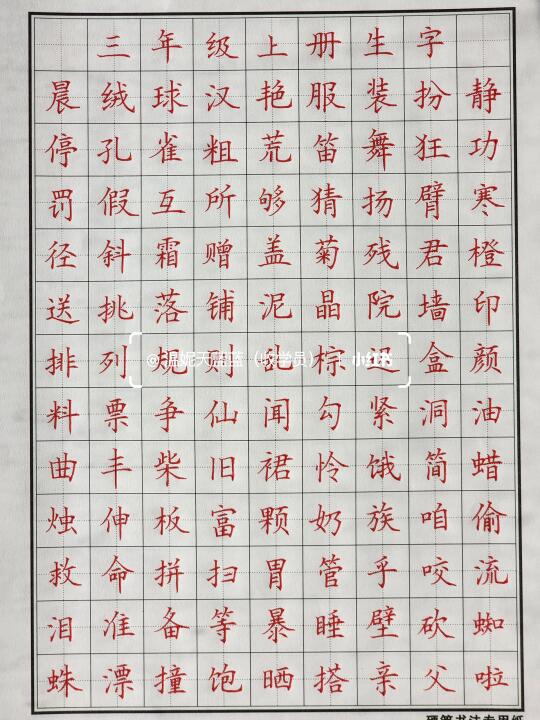 三年级上册生字
晨绒球汉艳服装扮静
停孔雀粗荒笛舞狂功
罚假互所够猜扬臂寒
径斜霜赠盖菊残君橙
送挑落铺泥晶院墙印
排列规则乱棕迟盒颜
料票争仙闻勾紧洞油
曲丰柴旧裙怜饿简蜡
烛伸板富颗奶族咱偷
救命拼扫胃管乎咬流
泪准备等暴睡壁砍蜘
蛛漂撞饱晒搭亲父啦
硬笔书法专用纸